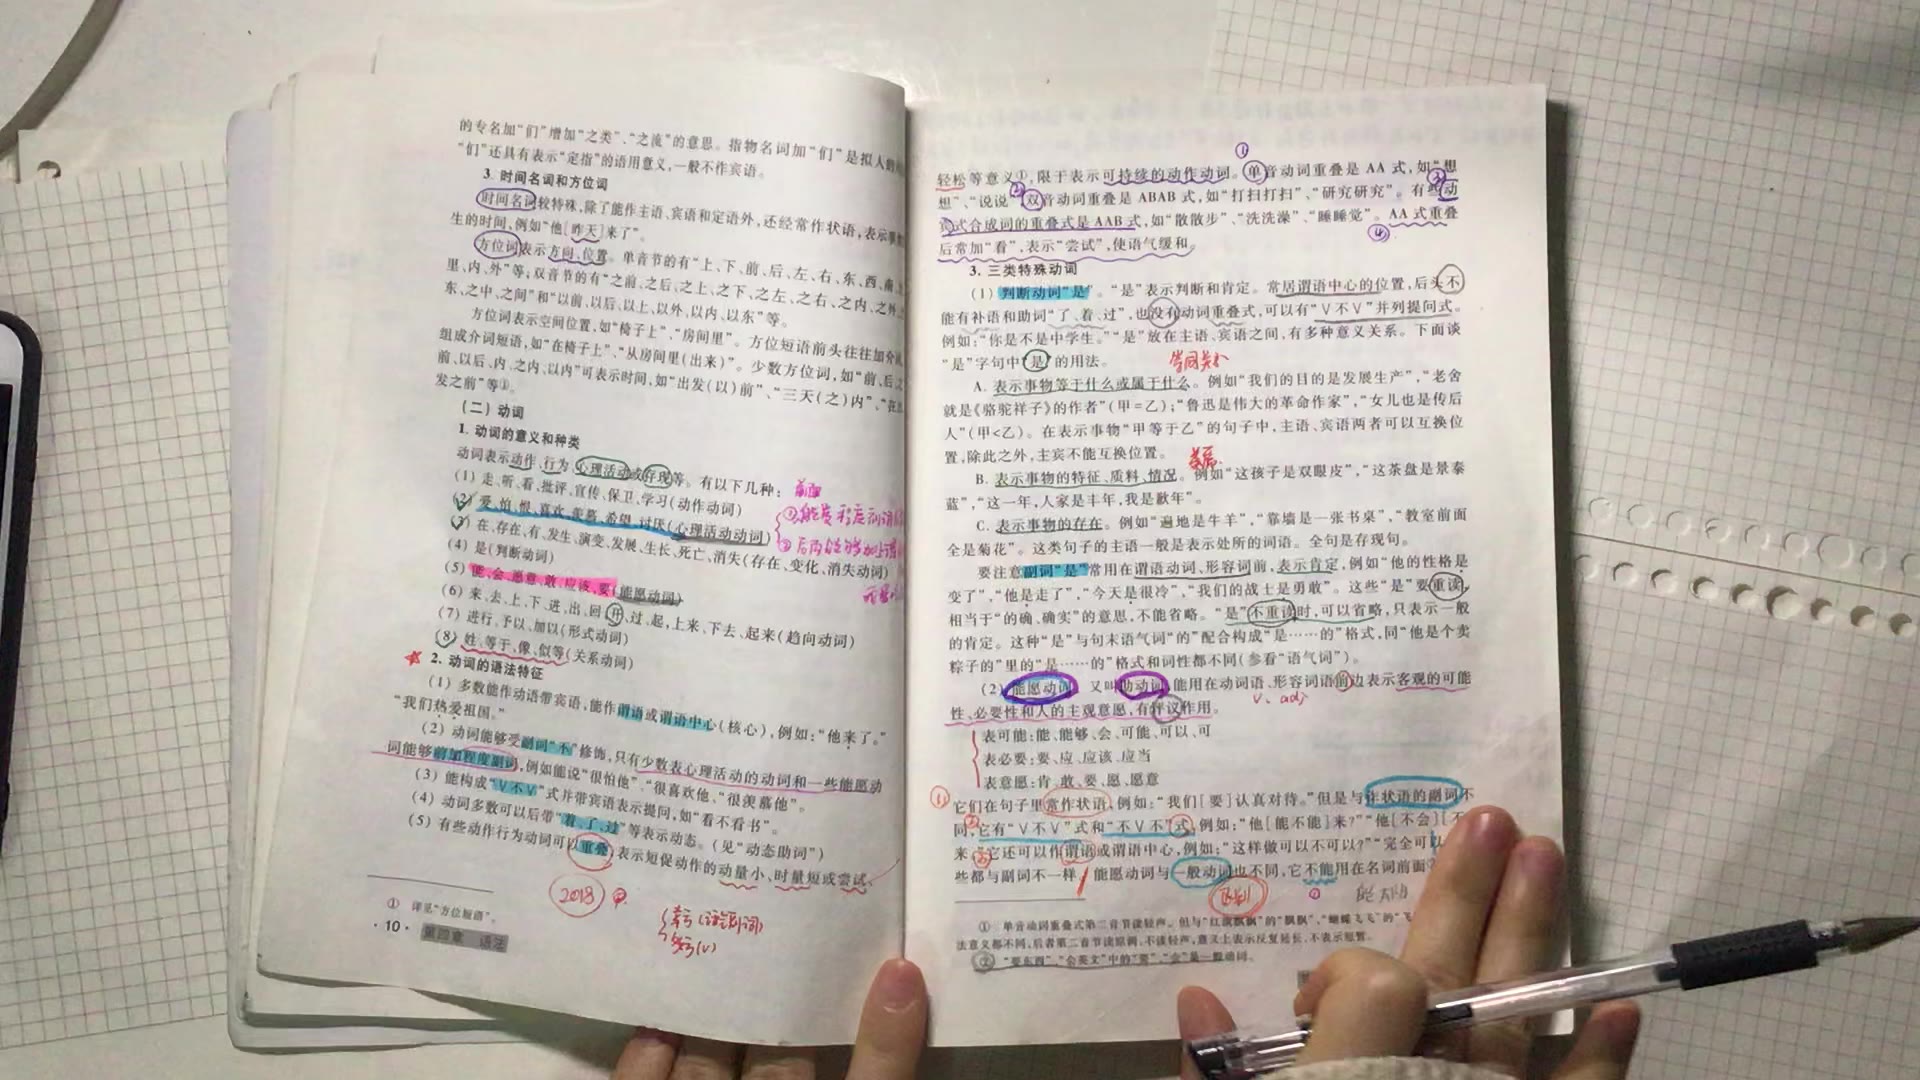 的专名加“们”增加“之类”、“之流”的意思。指物名词加“们”是拟人的
“们”还具有表示“定指”的语用意义,一般不作宾语。
3. 时间名词和方位词
时间名词较特殊,除了能作主语、宾语和定语外,还经常作状语,表示
生的时间,例如“他[昨天]来了”。
方位词表示方向、位置。单音节的有“上、下、前、后、左、右、东、西、南、
里、内、外”等;双音节的有“之前、之后、之上、之下、之左、之右、之内、之外、
东、之中、之间”和“以前、以后、以上、以外、以内、以东”等。
方位词表示空间位置,如“椅子上”、“房间里”。方位短语前头往往加介
组成介词短语,如“在椅子上”、“从房间里(出来)”。少数方位词,如“前、后、
前、以后、内、之内、以内”可表示时间,如“出发(以)前”、“三天(之)内”、“在
发之前”等①。
(二) 动词
1. 动词的意义和种类
动词表示动作、行为、心理活动或存现等。有以下几种:
(1) 走、听、看、批评、宣传、保卫、学习(动作动词)
(2) 爱、怕、恨、喜欢、羡慕、希望、讨厌(心理活动动词)
(3) 在、存在、有、发生、演变、发展、生长、死亡、消失(存在、变化、消失动词)
(4) 是(判断动词)
(5) 能、会、愿意、敢、应该、要(能愿动词)
(6) 来、去、上、下、进、出、回、开、过、起、上来、下去、起来(趋向动词)
(7) 进行、予以、加以(形式动词)
(8) 姓、等于、像、似等(关系动词)
2. 动词的语法特征
(1) 多数能作动语带宾语,能作谓语或谓语中心(核心),例如:“他来了。”
“我们热爱祖国。”
(2) 动词能够受副词“不”修饰,只有少数表心理活动的动词和一些能愿动
词能够前加程度副词,例如能说“很怕他”、“很喜欢他、“很羡慕他”。
(3) 能构成“V不V”式并带宾语表示提问,如“看不看书”。
(4) 动词多数可以后带“着、了、过”等表示动态。(见“动态助词”)
(5) 有些动作行为动词可以重叠,表示短促动作的动量小、时量短或尝试、
2018
① 详见“方位短语”。
·10· 第四章 语法
轻松等意义①,限于表示可持续的动作动词。单音动词重叠是AA式,如“想
想”、“说说”;双音动词重叠是ABAB式,如“打扫打扫”、“研究研究”。有些动
宾式合成词的重叠式是AAB式,如“散散步”、“洗洗澡”、“睡睡觉”。AA式重叠
后常加“看”,表示“尝试”,使语气缓和。
3. 三类特殊动词
(1) 判断动词“是”。“是”表示判断和肯定。常居谓语中心的位置,后头不
能有补语和助词“了、着、过”,也没有动词重叠式,可以有“V不V”并列提问式。
例如:“你是不是中学生。”“是”放在主语、宾语之间,有多种意义关系。下面谈
“是”字句中“是”的用法。
A. 表示事物等于什么或属于什么。例如“我们的目的是发展生产”,“老舍
就是《骆驼祥子》的作者”(甲=乙);“鲁迅是伟大的革命作家”,“女儿也是传后
人”(甲<乙)。在表示事物“甲等于乙”的句子中,主语、宾语两者可以互换位
置,除此之外,主宾不能互换位置。
B. 表示事物的特征、质料、情况。例如“这孩子是双眼皮”,“这茶盘是景泰
蓝”,“这一年,人家是丰年,我是歉年”。
C. 表示事物的存在。例如“遍地是牛羊”,“靠墙是一张书桌”,“教室前面
全是菊花”。这类句子的主语一般是表示处所的词语。全句是存现句。
要注意副词“是”常用在谓语动词、形容词前,表示肯定,例如“他的性格是
变了”,“他是走了”,“今天是很冷”,“我们的战士是勇敢”。这些“是”要重读,
相当于“的确、确实”的意思,不能省略。“是”不重读时,可以省略,只表示一般
的肯定。这种“是”与句末语气词“的”配合构成“是……的”格式,同“他是个卖
粽子的”里的“是……的”格式和词性都不同(参看“语气词”)。
(2) 能愿动词 又叫助动词,能用在动词语、形容词语前边表示客观的可能
V、adj
性、必要性和人的主观意愿,有评议作用。
表可能:能、能够、会、可能、可以、可
表必要:要、应、应该、应当
表意愿:肯、敢、要、愿、愿意
它们在句子里常作状语,例如:“我们[要]认真对待。”但是与作状语的副词不
同,它有“V不V”式和“不V不”式,例如:“他[能不能]来?”“他[不会][不
来”。它还可以作谓语或谓语中心,例如:“这样做可以不可以?”“完全可以
些都与副词不一样。能愿动词与一般动词也不同,它不能用在名词前面②
① 单音动词重叠式第二音节读轻声。但与“红旗飘飘”的“飘飘”、“蝴蝶飞飞”的“飞
法意义都不同,后者第二音节读原调,不读轻声,意义上表示反复延长,不表示短暂。
② “要东西”、“会英文”中的“要”、“会”是一般动词。